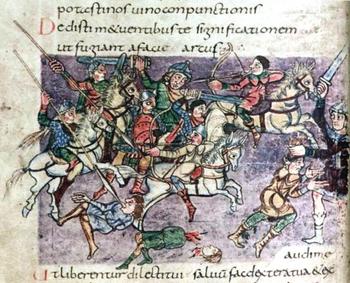 potastinos uino conpunctionis
Dedisti m&uentibus te significationem
ut fugiant afacie arcus
audime
Ut liberentur dilectitui saluum fac dextera tua & ex